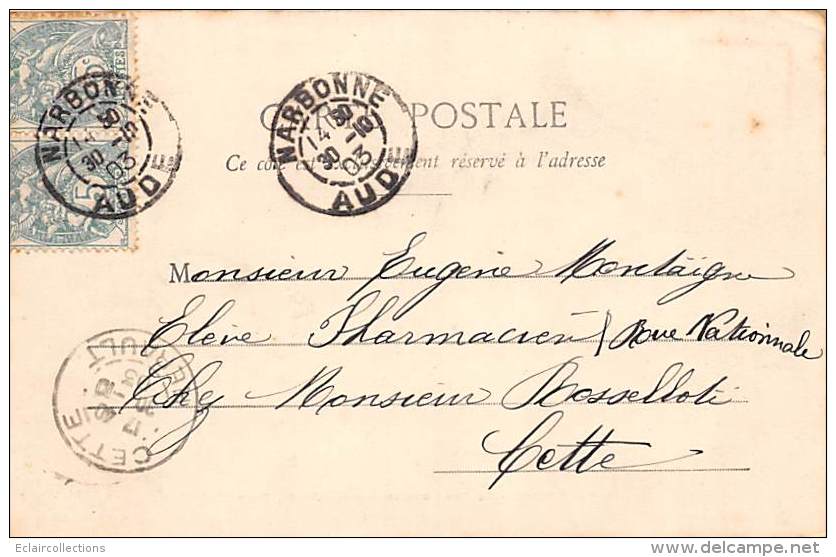 NARBONNE
14 30
30 -10
03
AUDE
NARBONNE
14 30
30 -10
03
AUDE
5
5
POSTALE
Ce côté est exclusivement réservé à l'adresse
Monsieur Eugène Montaigne
Elève Pharmacien Rue Nationnale
Chez Monsieur Rosselloti
Cette
CETTE
HERAULT
Eclaircollections
delcampe.net